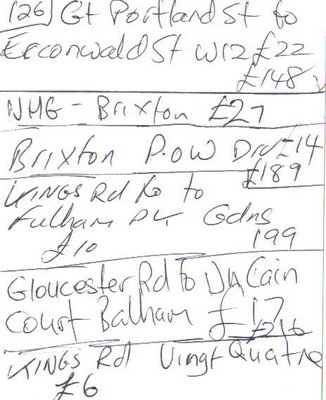 126) Gt Portland St to
Erconwald St W12 £22
£148
NHG - Brixton £27
Brixton P.O.W Drv £14
£189
Kings Rd to
Fulham Pk Gdns
£10 199
Gloucester Rd To
Court Balham £17
£216
Kings Rd Vingt Quatre
£6